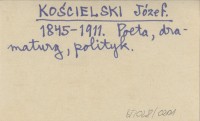 KOŚCIELSKI Józef.
1845-1911. Poeta, dra-
maturg, polityk.